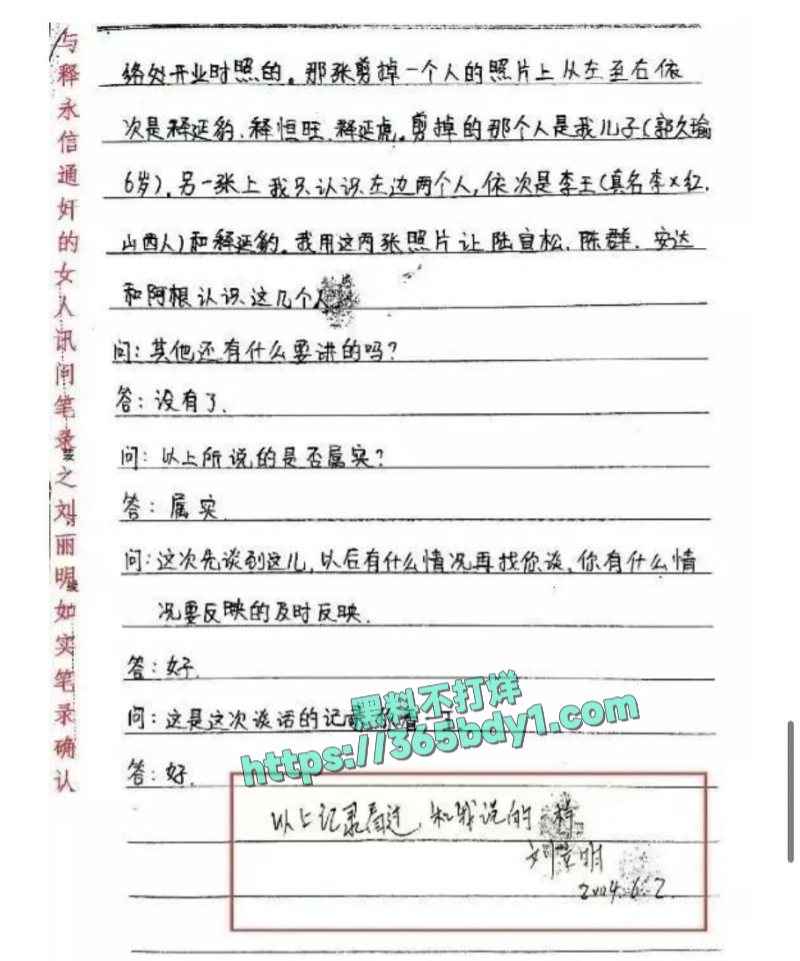 与释永信通奸的女人讯问笔录之刘丽明如实笔录确认
络处开业时照的。那张剪掉一个人的照片上从左至右依
次是释延豹、释恒旺、释延虎。剪掉的那个人是我儿子(郭久瑜
6岁)。另一张上我只认识左边两个人,依次是李王(真名李×红,
山西人)和释延豹。我用这两张照片让陆宜松、陈群、安达
和阿根认识这几个人
问:其他还有什么要讲的吗?
答:没有了.
问:以上所说的是否属实?
答:属实
问:这次先谈到这儿,以后有什么情况再找你谈,你有什么情
况要反映的及时反映.
答:好.
问:这是这次谈话的记
答:好.
黑料不打烊
https://365bdy1.com
以上记录看过,和我说的一样
刘立明
2004.6.2.